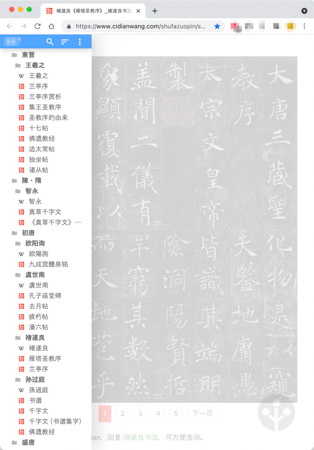 褚遂良《雁塔圣教序》_褚遂良书法
https://www.cidianwang.com/shufazuopin/s...
東晉
王羲之
王羲之
兰亭序
兰亭序赏析
集王圣教序
圣教序灼由来
十七帖
佛遗教经
适太常帖
独坐帖
诸从帖
陳・隋
智永
智永
真草千字文
《真草千字文》…
初唐
欧阳询
欧陽詢
九成宫醴泉铭
虞世南
虞世南
孔子庙堂碑
去月帖
疲朽帖
潘六帖
褚遂良
褚遂良
雁塔圣教序
兰亭序
孙过庭
孫過庭
书谱
千字文
千字文 (书谱集字)
佛遗教经
盛唐
大唐三藏聖
教序
太宗文皇帝
製
蓋聞二儀有
象顯覆載以
化物是以窺
天鑒地庸愚
皆識其端明
陰洞陽賢哲
罕窮其數然
而天地苞乎
1 2 3 4 5 下一页
回复 褚遂良书法, 可方便查询。